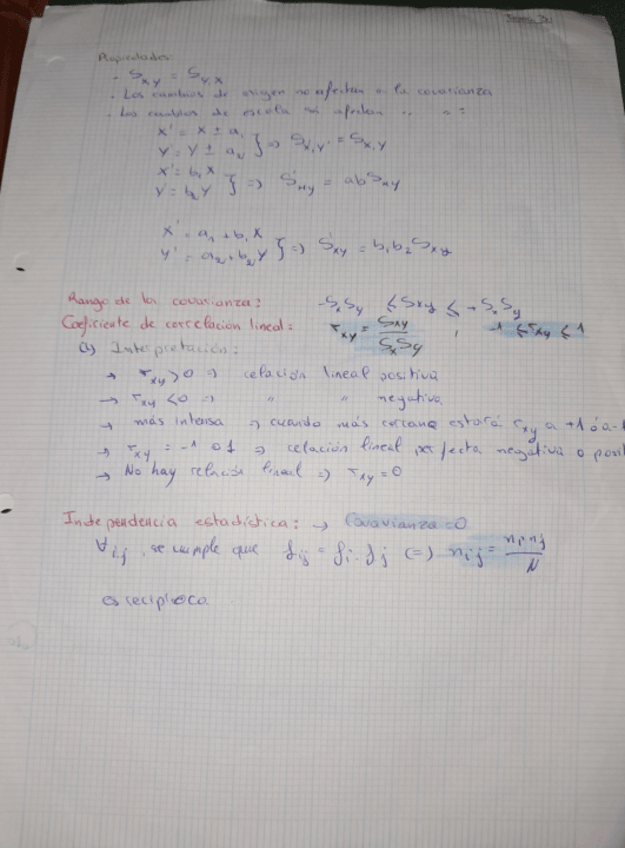 Propiedades:
- Sxy = Sy,x
. Los cambios de origen no afectan a la covarianza
. Los cambios de escala sí afectan " " "
X' = X ± a₁
Y' = Y ± a₂ } => Sx',y' = Sx,y
X' = b₁ X
Y' = b₂ Y } => S'xy = abSxy
X' = a₁ + b₁ X
Y' = a₂ + b₂ Y } => S'xy = b₁b₂Sxy
Rango de la covarianza: -SxSy ≤ Sxy ≤ + SxSy
Coeficiente de correlación lineal: rxy = Sxy / SxSy , -1 ≤ rxy ≤ 1
Interpretación:
→ rxy > 0 => relación lineal positiva
→ rxy < 0 => " " negativa
→ más intensa => cuando más cercana estará rxy a +1 ó a -1
→ rxy = -1 o 1 => relación lineal perfecta negativa o posit
→ No hay relación lineal => rxy = 0
Independencia estadística: → Covarianza = 0
∀ i,j , se cumple que fij = fi. fj (=) nij = ni nj / N
es recíproca